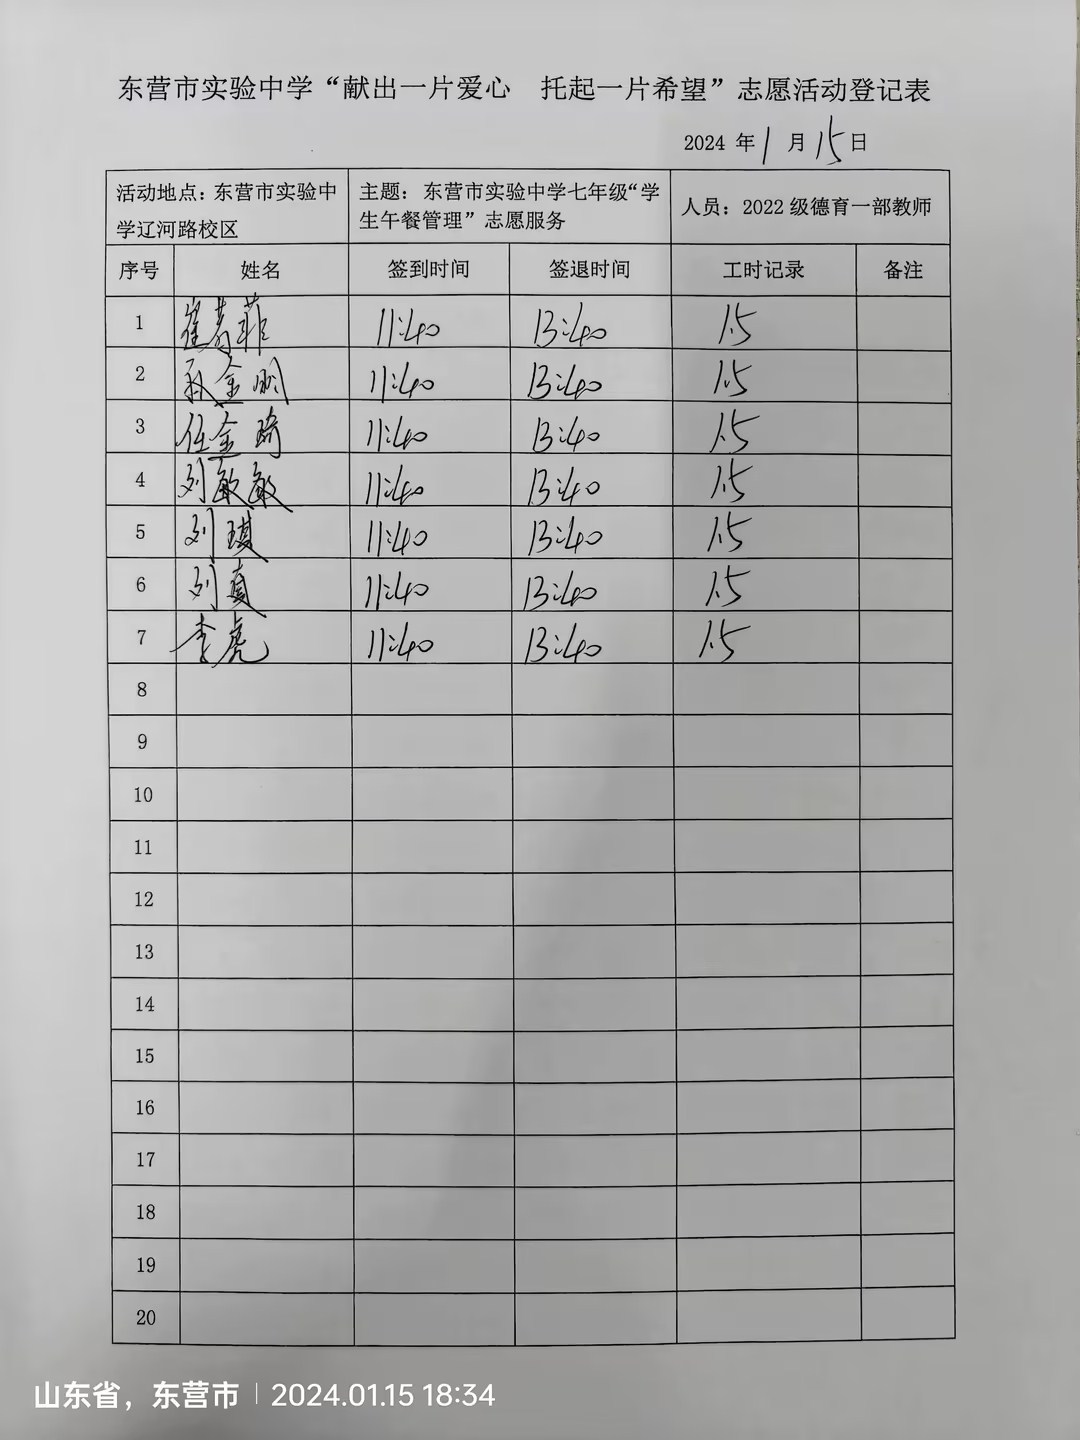 东营市实验中学“献出一片爱心　托起一片希望”志愿活动登记表
2024 年 1 月 15 日
活动地点：东营市实验中学辽河路校区 主题：东营市实验中学七年级“学生午餐管理”志愿服务 人员：2022 级德育一部教师
序号 姓名 签到时间 签退时间 工时记录 备注
1 崔 菲 11:40 13:40 1.5
2 孙金明 11:40 13:40 1.5
3 任金琦 11:40 13:40 1.5
4 刘敏敏 11:40 13:40 1.5
5 刘琪 11:40 13:40 1.5
6 刘真 11:40 13:40 1.5
7 李虎 11:40 13:40 1.5
8
9
10
11
12
13
14
15
16
17
18
19
20
山东省，东营市 | 2024.01.15 18:34